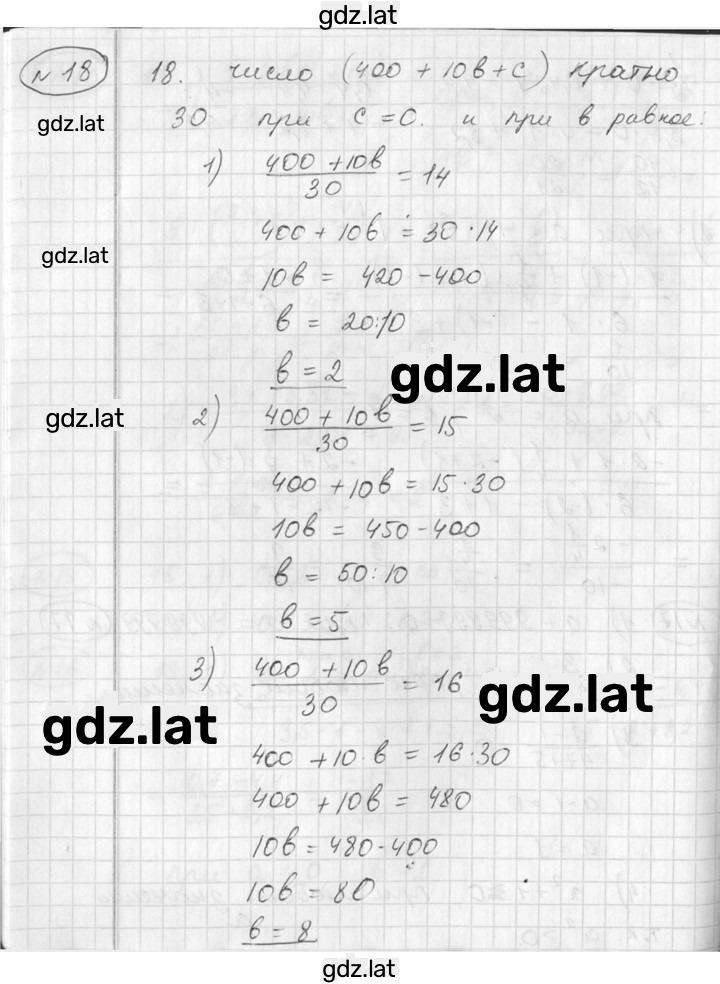 gdz.lat
№ 18
18. число (400 + 10в + с) кратно
gdz.lat
30 при с = 0. и при в равное:
1) (400 + 10в)/30 = 14
400 + 10в = 30 · 14
gdz.lat
10в = 420 - 400
в = 20:10
в = 2
gdz.lat
gdz.lat
2) (400 + 10в)/30 = 15
400 + 10в = 15 · 30
10в = 450 - 400
в = 50:10
в = 5
3) (400 + 10в)/30 = 16
gdz.lat
gdz.lat
400 + 10 · в = 16 · 30
400 + 10в = 480
10в = 480 - 400
10в = 80
в = 8
gdz.lat